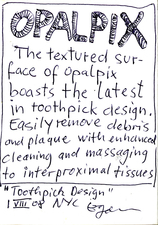 OPALPIX
The textured sur-
face of Opalpix
boasts the latest
in toothpick design.
Easily remove debris
and plaque with enhanced
cleaning and massaging
to interproximal tissues
"Toothpick Design"
1 VIII 08 NYC